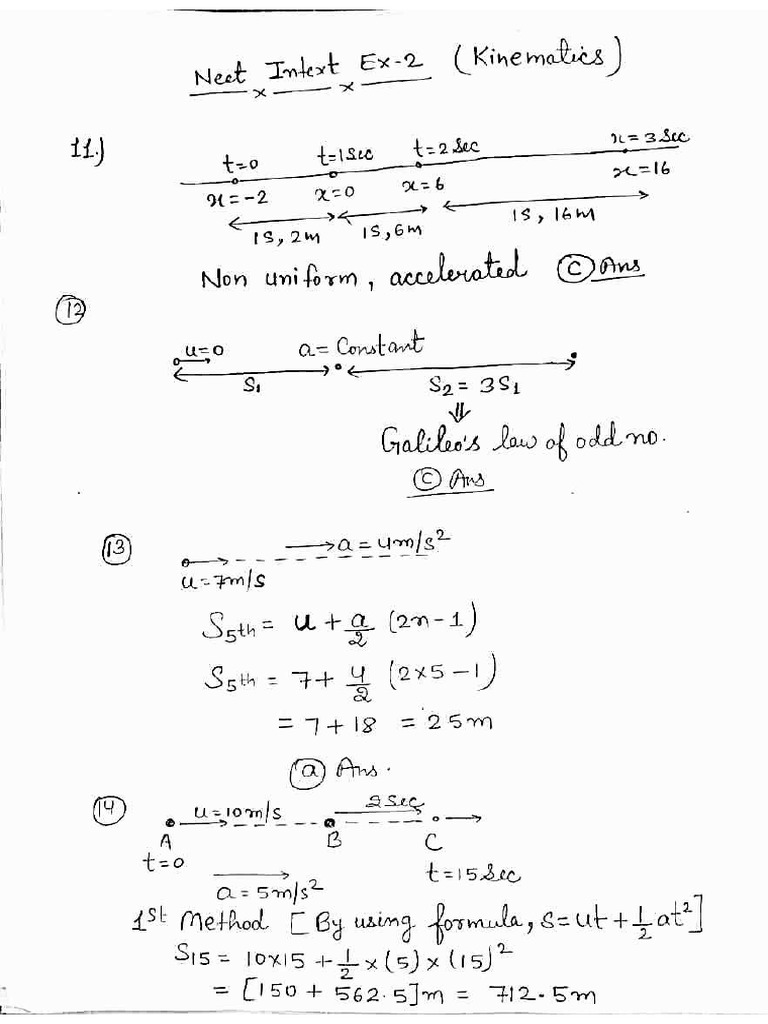 Neet Intext Ex-2 (Kinematics)
11.)
t=0 t=1Sec t=2Sec x=3Sec
x=-2 x=0 x=6 x=16
1S, 2m 1S, 6m 1S, 16m
Non uniform, accelerated (c) Ans
(12)
u=0 a= Constant
S₁ S₂ = 3S₁
⇓
Galileo's law of odd no.
(c) Ans
(13)
→ a = 4m/s²
u=7m/s
S₅ₜₕ = u + a/2 (2n-1)
S₅ₜₕ = 7+ 4/2 (2×5-1)
= 7+18 = 25m
(a) Ans.
(14)
u=10m/s 2Sec
A B C
t=0 t=15Sec
a=5m/s²
1st Method [By using formula, s=ut+½at²]
S15 = 10×15 + ½ × (5) × (15)²
= [150 + 562.5]m = 712.5m